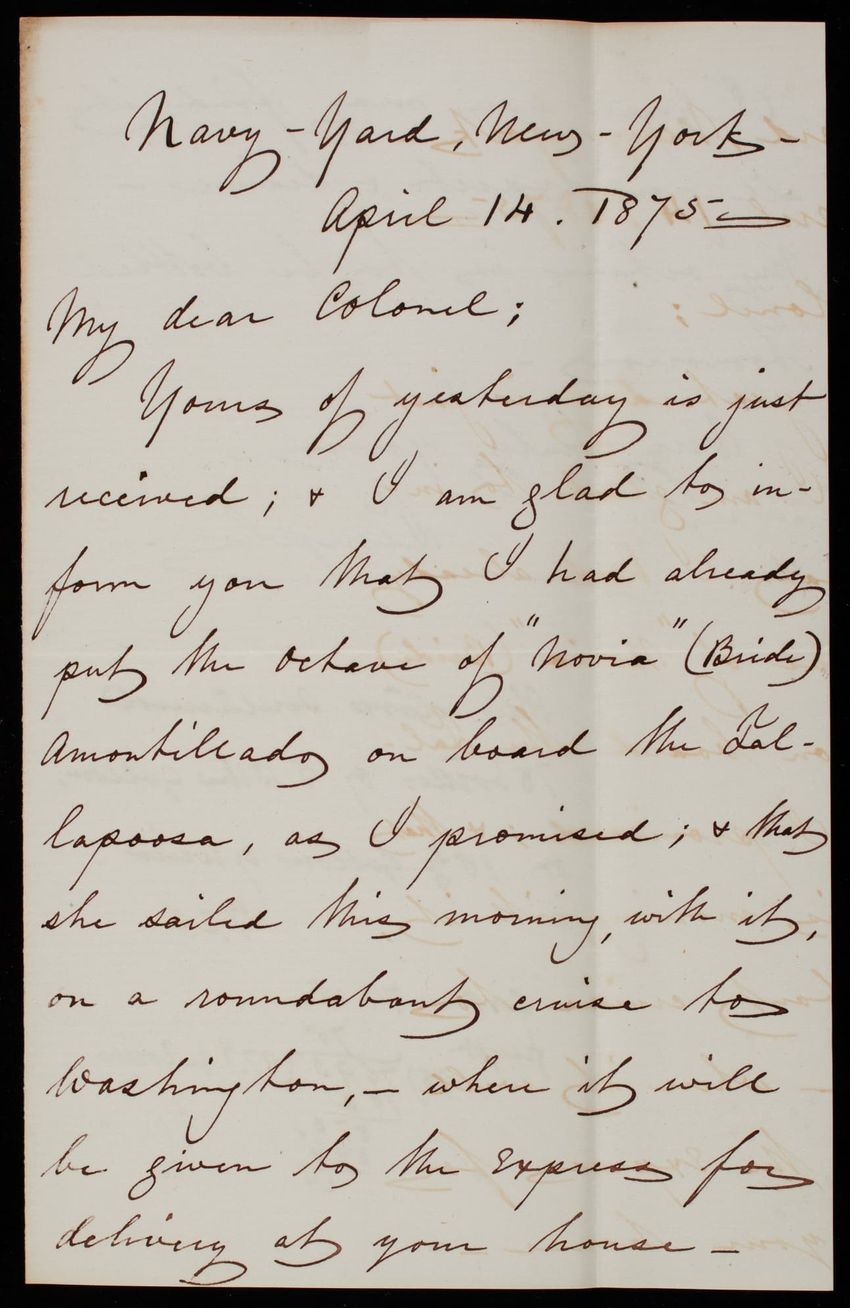 Navy-Yard, New-York-
April 14. 1875
My dear Colonel;
Yours of yesterday is just
received; & I am glad to in-
form you that I had already
put the Octave of "Novia" (Bride)
Amontillado on board the Tal-
lapoosa, as I promised; & that
she sailed this morning, with it,
on a roundabout cruise to
Washington,- where it will
be given to the Express for
delivery at your house-